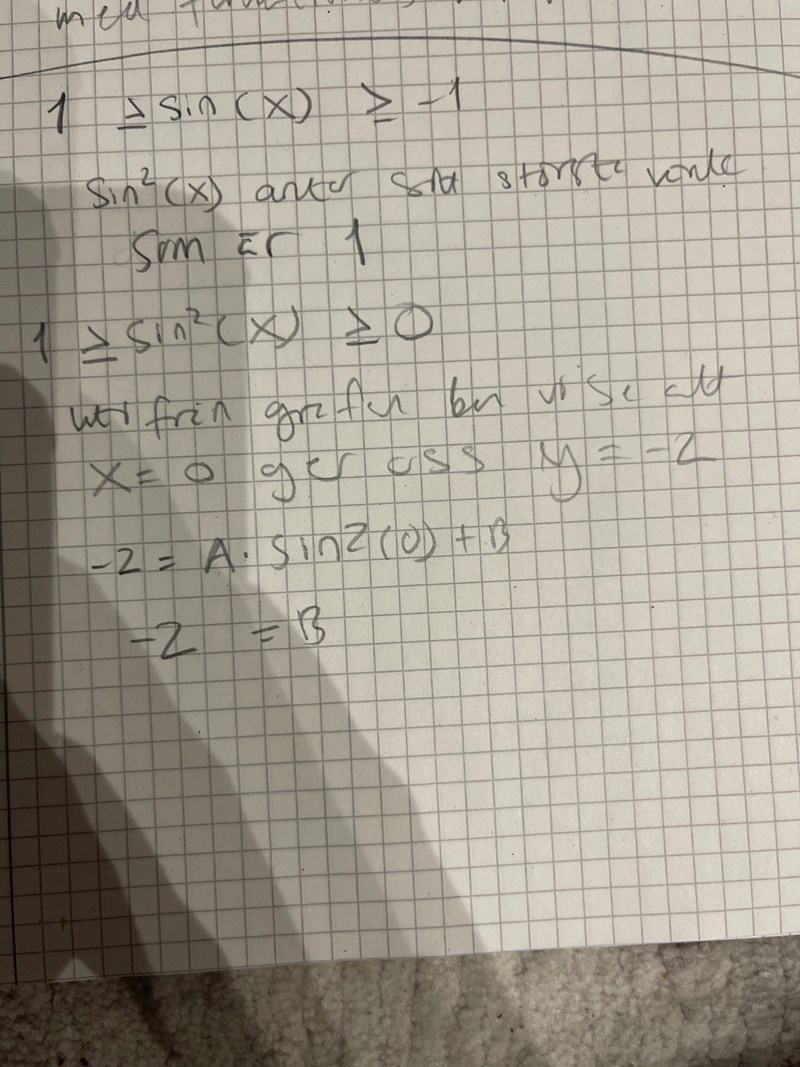 med
1 ≥ sin(x) ≥ -1
sin²(x) antar sitt största värde
som är 1
1 ≥ sin²(x) ≥ 0
från grafen kan vi se att
x = 0 ger oss y = -2
-2 = A · sin2(0) + B
-2 = B